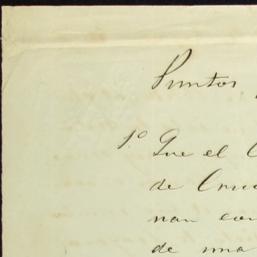 Puntos
1º Que el
de
nan con
de una